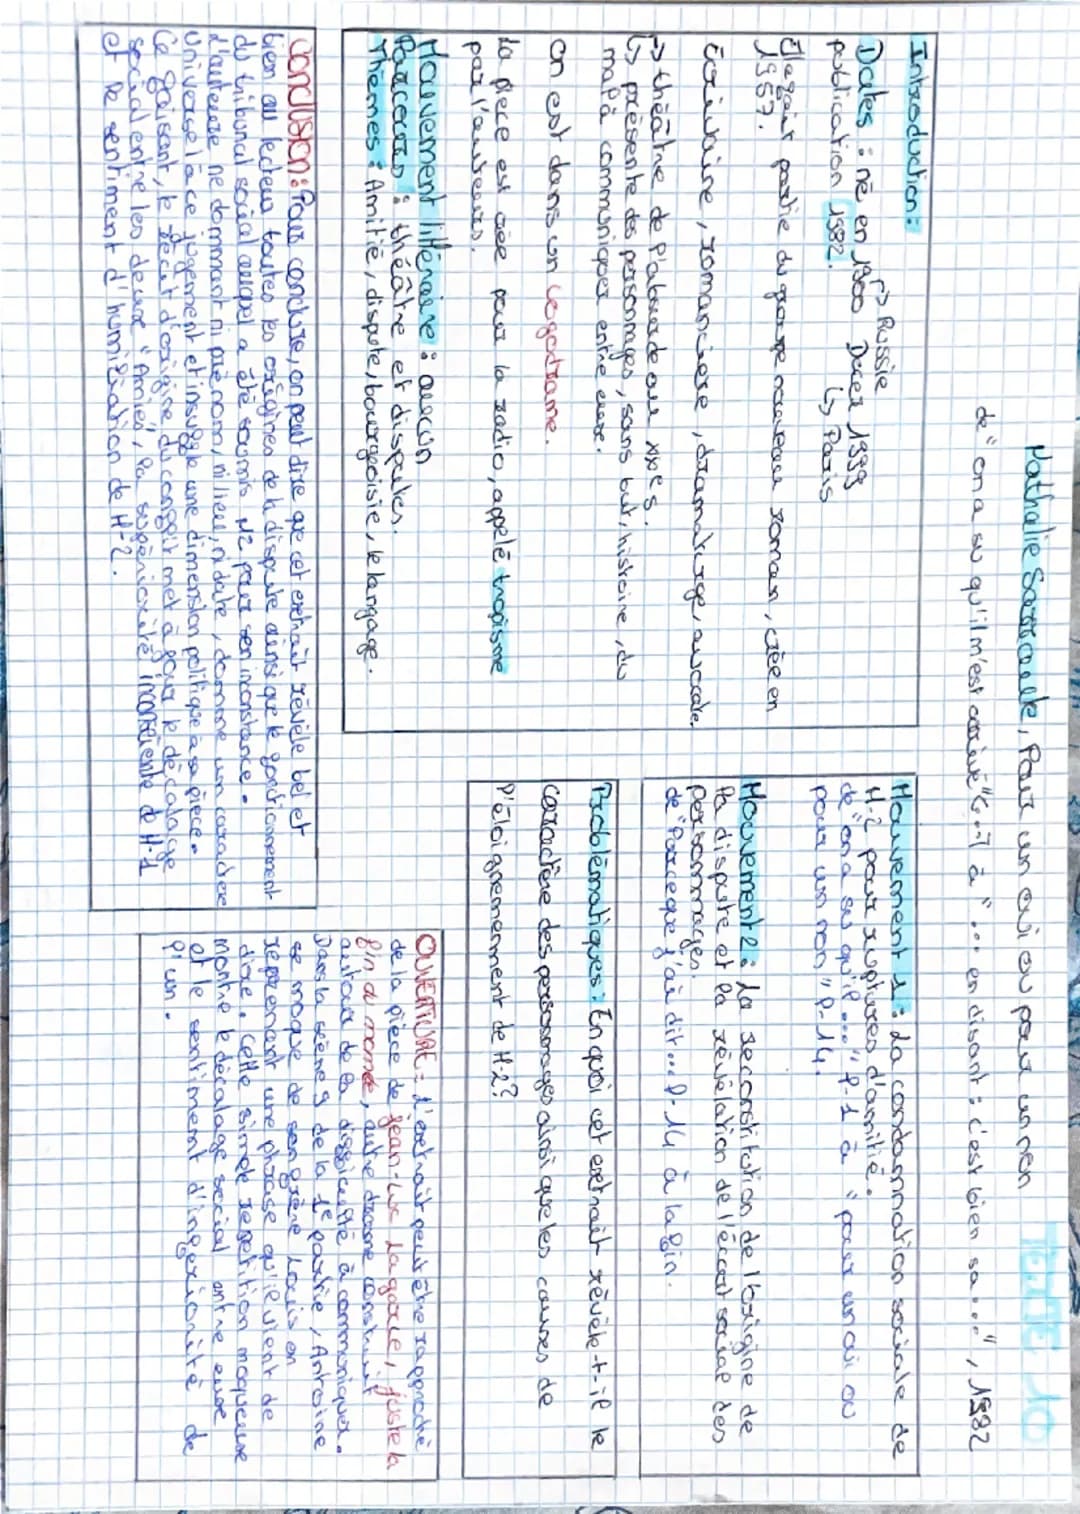 TEXTE 10
Nathalie Sarraute, Pour un oui ou pour un non
de "on a su qu'il m'est arrivé" (...) à "... en disant : c'est bien sa...", 1982
Introduction :
↱ Russie
Dates : né en 1900 Décès 1999
↳ Paris
publication 1982.
Elle fait partie du groupe nouveau roman, créé en
1957.
Écrivaine, romancière, dramaturge, avocate.
→ théâtre de l'absurde au XXes.
↳ présente des personnages, sans but, histoire, du
mal à communiquer entre eux.
On est dans un logodrame.
La pièce est créé pour la radio, appelé tropisme
par l'auteurs.
Mouvement littéraire : aucun
Parcours : théâtre et disputes.
Thèmes : Amitié, dispute, bourgeoisie, le langage.
Mouvement 1 : La condamnation sociale de
H-2 pour ruptures d'amitié.
de "on a su qu'il..." l-1 à "pour un oui ou
pour un non" l-14.
Mouvement 2 : La reconstitution de l'origine de
la dispute et la révélation de l'écart social des
personnages.
de "Parce que j'ai dit... l-14 à la fin.
Problématiques : En quoi cet extrait révèle-t-il le
caractère des personnages ainsi que les causes de
l'éloignement de H-2?
Conclusion : Pour conclure, on peut dire que cet extrait révèle bel et
bien au lecteur toutes les origines de la dispute ainsi que le fonctionnement
du tribunal social auquel a été soumis H2 pour son inconstance.
L'auteure ne donnant ni prénom, ni lieu, ni date, donne un caractère
universel à ce jugement et insuffle une dimension politique à sa pièce.
Ce faisant, le récit d'origine du conflit met à jour le décalage
social entre les deux "Amies", la supériorité inconsciente de H-1
et le sentiment d'humiliation de H-2.
OUVERTURE : L'extrait peut être rapproché
de la pièce de Jean-Luc Lagarce, juste la
fin du monde, autre drame construit
autour de la difficulté à communiquer.
Dans la scène 9 de la 1e partie, Antoine
se moque de son frère Louis en
reprenant une phrase qu'il vient de
dire. Cette simple répétition moqueuse
montre le décalage social entre eux
et le sentiment d'infériorité de
l'un.